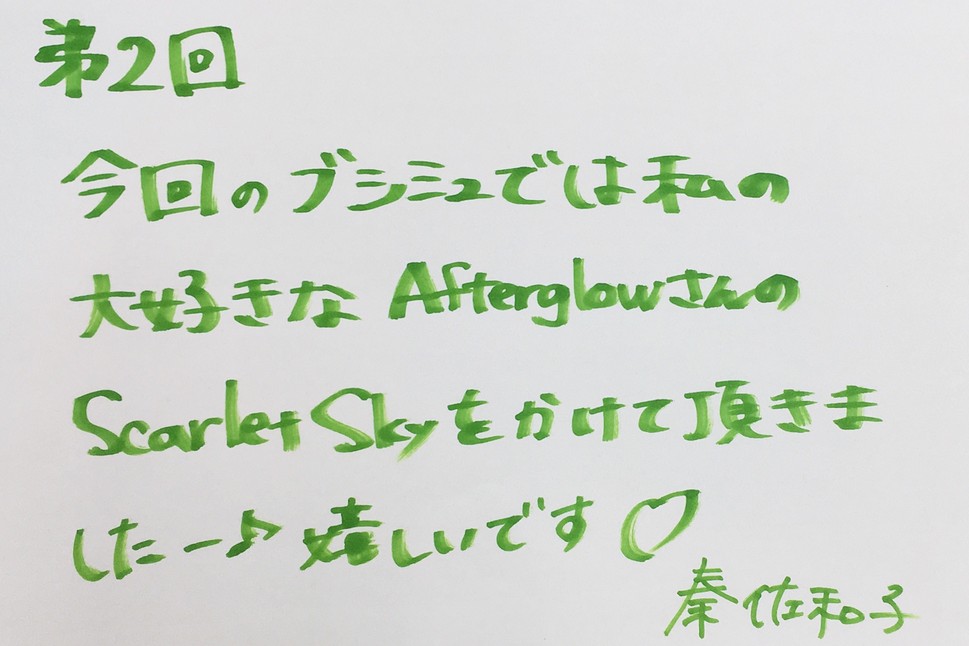 第2回
今回のブシミュでは私の
大好きなAfterglowさんの
Scarlet Skyをかけて頂きま
したー♪ 嬉しいです♡
秦佐和子